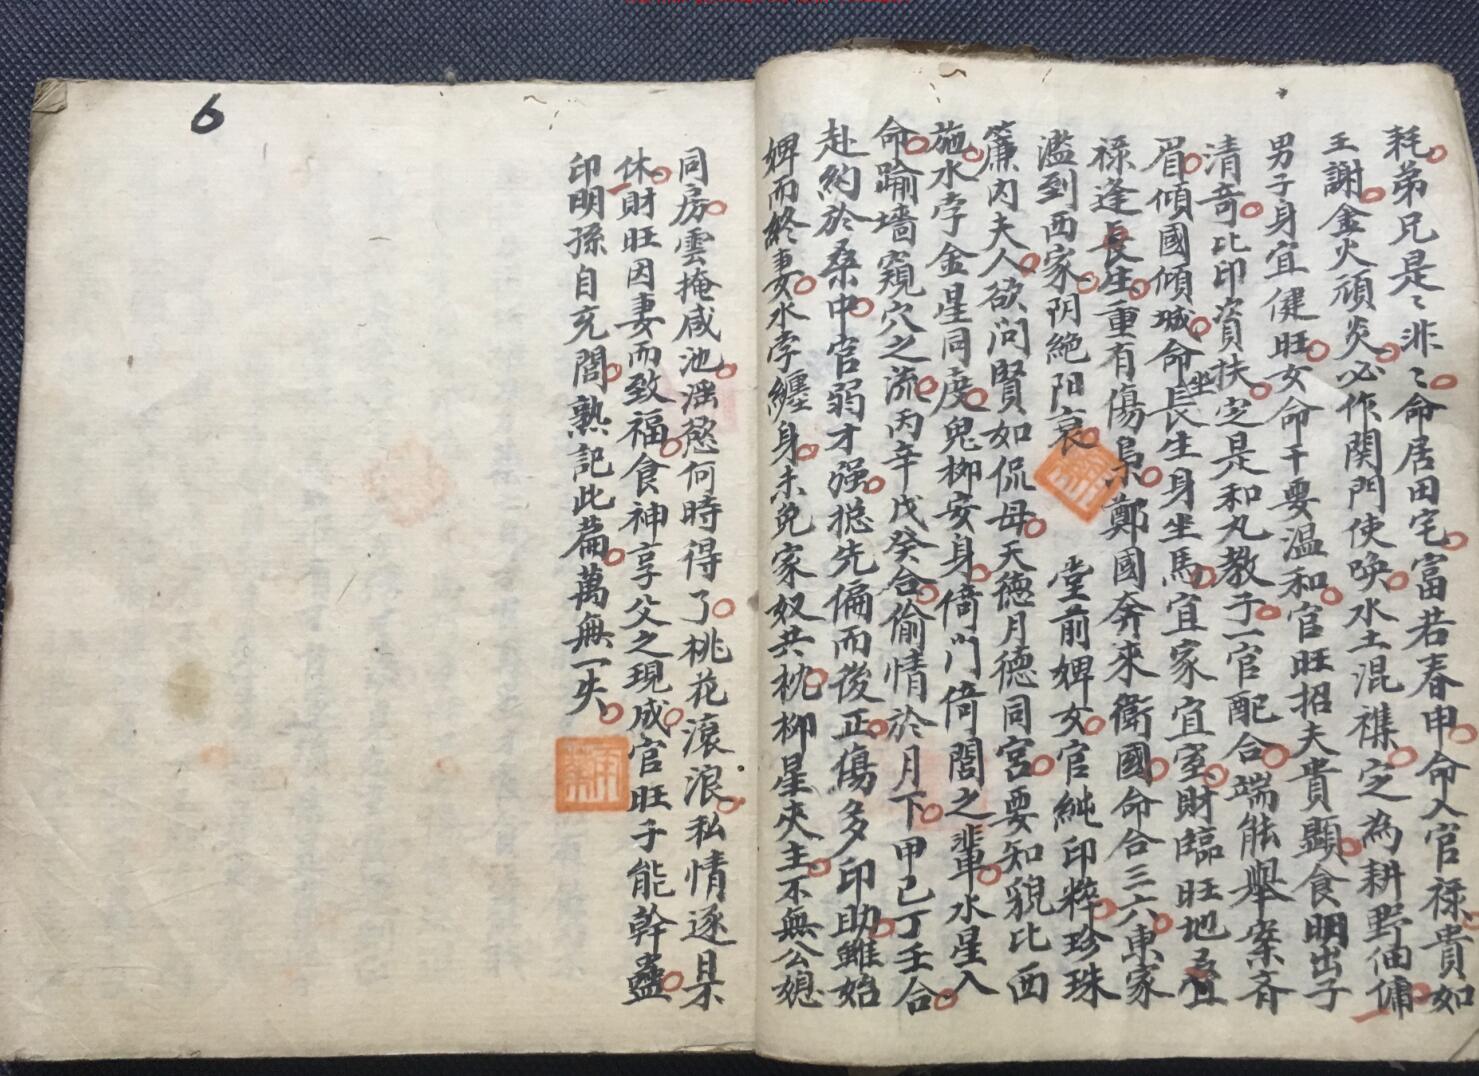 耗弟兄是〻非〻命居田宅富若春申命入官禄貴如
王謝金火頑炎必作関門使唤水土混襍定為耕野佃傭
男子身宜健旺女命干要温和官旺招夫貴顯食明出子
清奇比印資扶定是和丸教子一官配合端能舉案齐
眉傾國傾城命坐長生身坐馬宜家宜室財臨旺地
禄逢長生重有傷梟鄭國奔来衛國命合三六東家
濫到西家阴絶阳衰 堂前婢女官純印粹珍珠
簾内夫人欲问賢如侃母天德月德同宮要知貌比西
施水孛金星同度鬼柳安身倚门倚閭之輩水星入
命踰墙窺穴之流丙辛戊癸合偷情於月下甲己丁壬合
赴約於桑中官弱才强捴先偏而後正傷多印助雖始
婢而終妻水孛纏身未免家奴共枕柳星夾主不無公媳
同房雲掩咸池滛慾何時得了桃花滾浪私情逐日
休財旺因妻而致福食神享父之現成官旺子能幹蠱
印明孫自充閭熟記此篇萬無一失
6